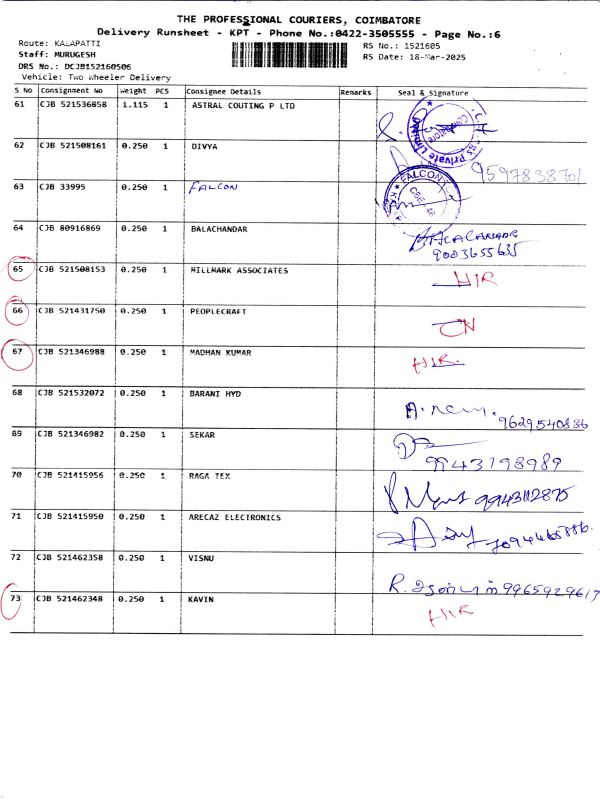 THE PROFESSIONAL COURIERS, COIMBATORE
Delivery Runsheet - KPT - Phone No.:0422-3505555 - Page No.:6
Route: KALAPATTI RS No.: 1521605
Staff: MURUGESH RS Date: 18-Mar-2025
DRS No.: DCJB152160506
Vehicle: Two Wheeler Delivery
S No Consignment No Weight PCS Consignee Details Remarks Seal & Signature
61 CJB 521536858 1.115 1 ASTRAL COUTING P LTD
62 CJB 521508161 0.250 1 DIVYA 9597838701
63 CJB 33995 0.250 1 FALCON
64 CJB 80916869 0.250 1 BALACHANDAR
9003655635
65 CJB 521508153 0.250 1 HILLMARK ASSOCIATES HIR
66 CJB 521431750 0.250 1 PEOPLECRAFT CN
67 CJB 521346988 0.250 1 MADHAN KUMAR HIR.
68 CJB 521532072 0.250 1 BARANI HYD 9629540836
69 CJB 521346982 0.250 1 SEKAR
9943198989
70 CJB 521415956 0.250 1 RAGA TEX
71 CJB 521415950 0.250 1 ARECAZ ELECTRONICS
72 CJB 521462358 0.250 1 VISNU 9965929617
73 CJB 521462348 0.250 1 KAVIN HIR